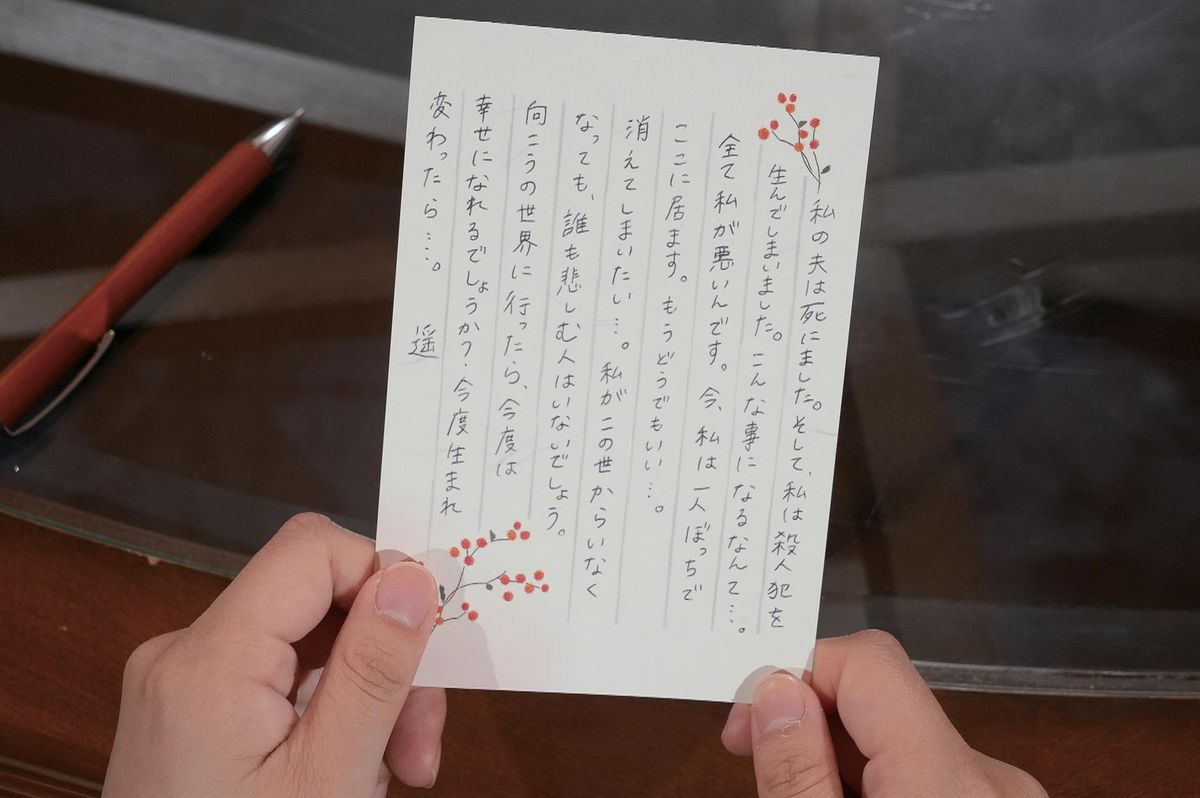 私の夫は死にました。そして、私は殺人犯を
生んでしまいました。こんな事になるなんて…。
全て私が悪いんです。今、私は一人ぼっちで
ここに居ます。もうどうでもいい…。
消えてしまいたい…。私がこの世からいなく
なっても、誰も悲しむ人はいないでしょう。
向こうの世界に行ったら、今度は
幸せになれるでしょうか?今度生まれ
変わったら…。
遥